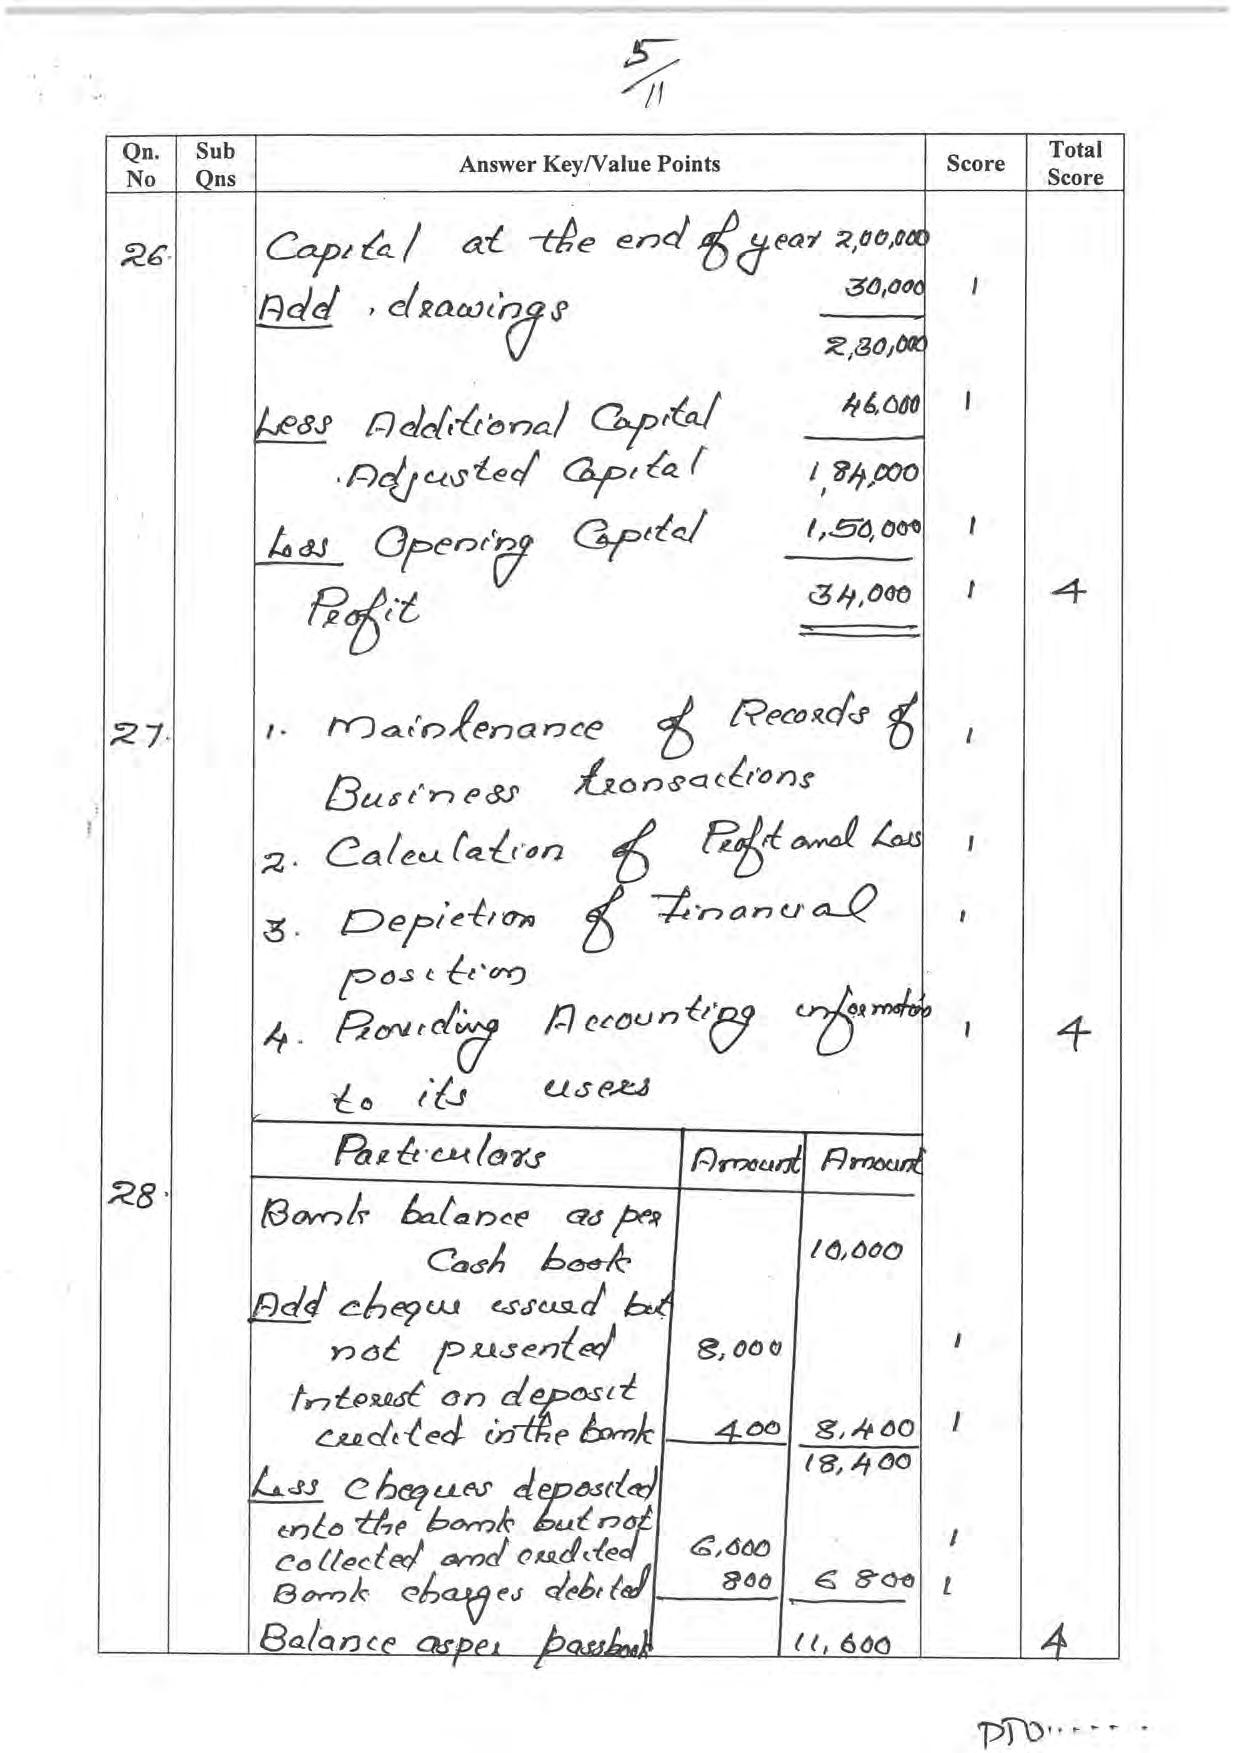 5/11
Qn. No Sub Qns Answer Key/Value Points Score Total Score
26. Capital at the end of year 2,00,000
Add . drawings 30,000 1
2,30,000
Less Additional Capital 46,000 1
Adjusted Capital 1,84,000
Less Opening Capital 1,50,000 1
Profit 34,000 1 4
27. 1. Maintenance of Records of 1
Business transactions
2. Calculation of Profit and Loss 1
3. Depiction of Financial 1
position
4. Providing Accounting information 1 4
to its users
Particulars Amount Amount
28. Bank balance as per
Cash book 10,000
Add cheque issued but
not presented 8,000 1
Interest on deposit
credited in the bank 400 8,400 1
18,400
Less cheques deposited
into the bank but not
collected and credited 6,000 1
Bank charges debited 800 6 800 1
Balance as per passbook 11,600 4
PTO.......